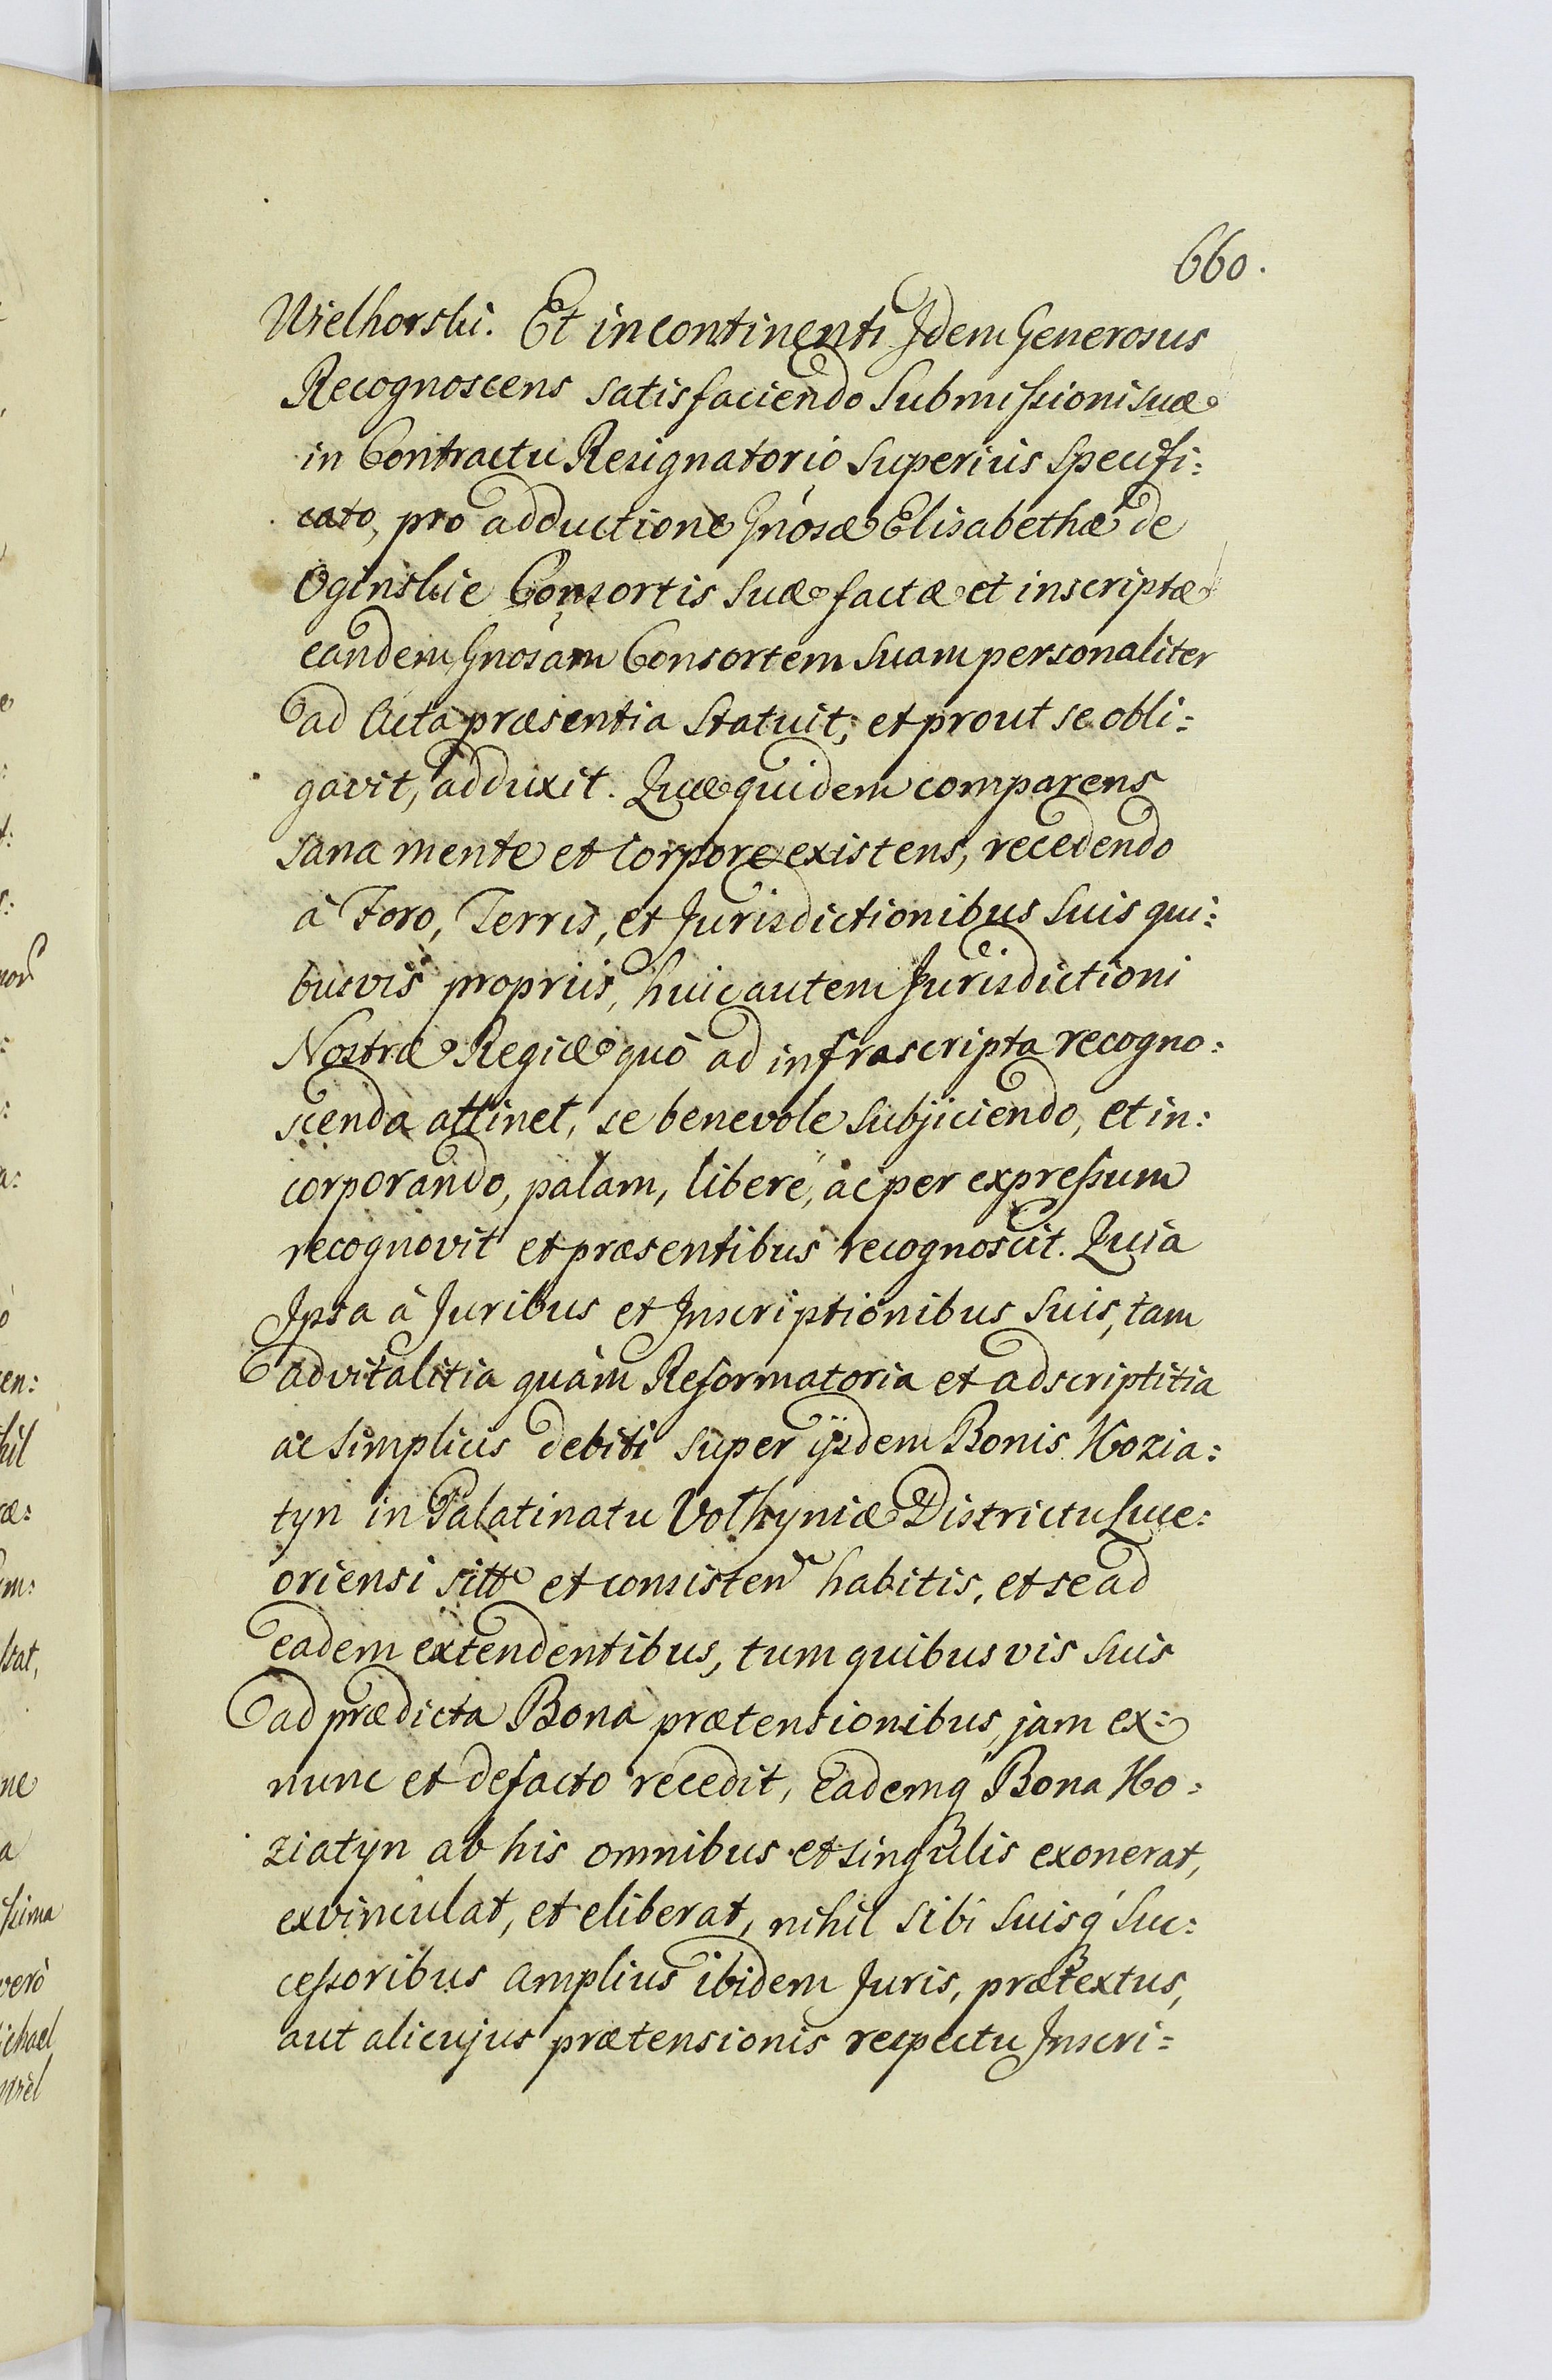 660.
Wielhorski. Et incontinenti Idem Generosus
Recognoscens satisfaciendo Submissioni suæ
in Contractu Resignatorio superius specifi:
cato, pro adductione Gnosæ Elisabethæ de
Oginskie Consortis suæ factæ et inscriptæ
eandem Gnosam Consortem suam personaliter
ad Acta præsentia statuit, et prout se obli:
gavit, adduxit. Quæ quidem comparens
sana mente et corpore existens, recedendo
à Foro, Terris, et Jurisdictionibus suis qui:
busvis propriis, huic autem Jurisdictioni
Nostræ Regiæ quò ad infrascripta recogno:
scenda attinet, se benevole subjiciendo, et in:
corporando, palam, liberè, ac per expressum
recognovit et præsentibus recognoscit. Quia
Ipsa à Juribus et Inscriptionibus suis, tam
advitalitia quàm Reformatoria et adscriptitia
ac simplicis debiti super ijsdem Bonis Kozia:
tyn in Palatinatu Volhyniæ Districtu Luce:
oriensi sitt et consisten habitis, et se ad
eadem extendentibus, tum quibusvis suis
ad prædicta Bona prætensionibus, jam ex:
nunc et defacto recedit, Eademq Bona Ko:
ziatyn ab his omnibus et singulis exonerat,
exvinculat, et eliberat, nihil sibi suisq suc:
cessoribus amplius ibidem Juris, prætextus,
aut alicujus prætensionis respectu Inscri: